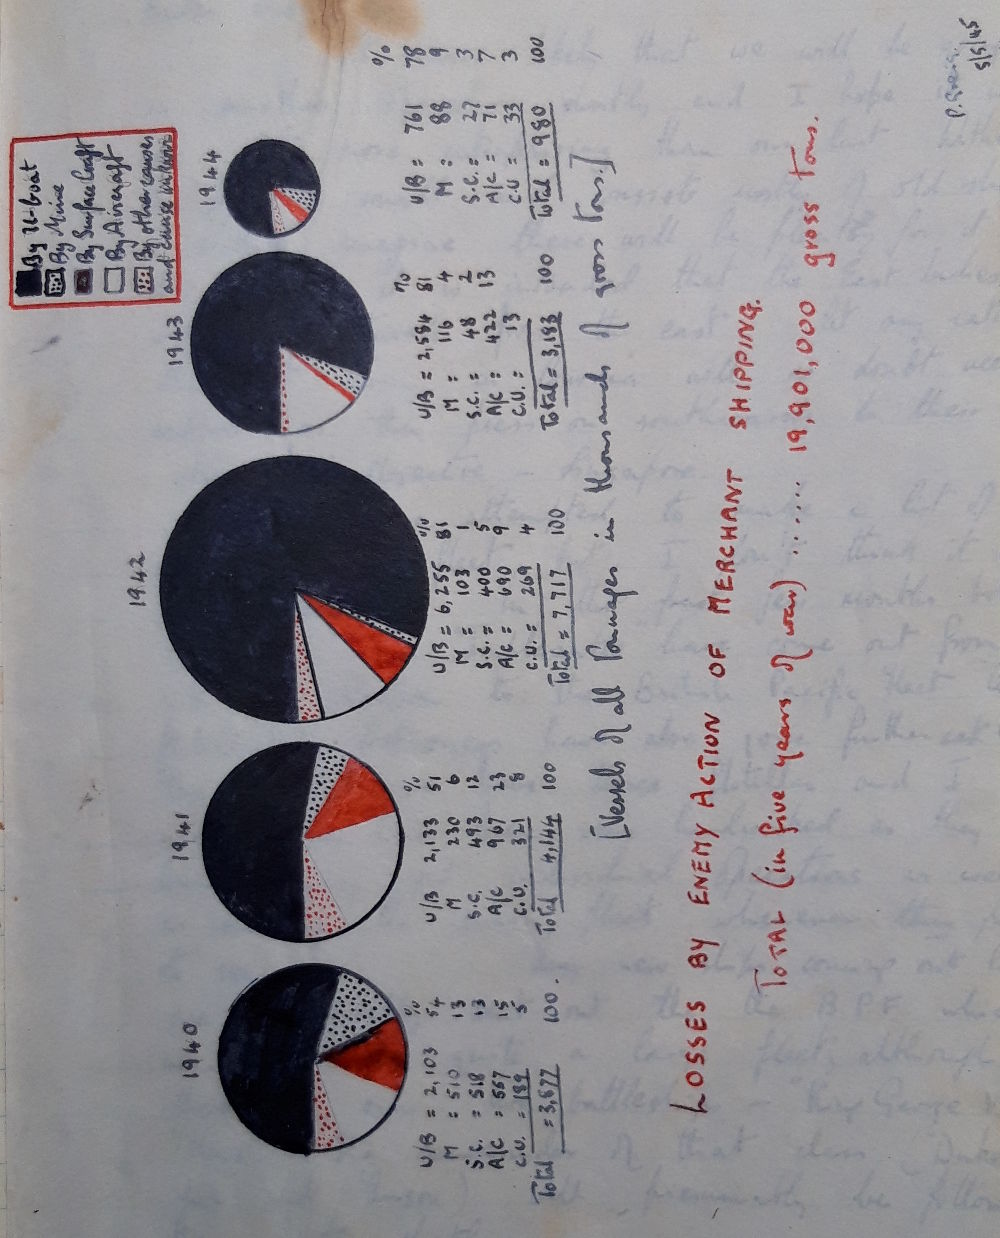 By U-boat
By Mine
By Surface Craft
By Aircraft
By other causes
and cause unknown
1940
1941
1942
1943
1944
%
U/B = 2,103 54
M = 510 13
S.C. = 518 13
A/C = 557 15
C.U. = 189 5
Total = 3,877 100.
%
U/B 2,133 51
M 230 6
S.C. 493 12
A/C 967 23
C.U. 321 8
Total 4,144 100
%
U/B = 6,255 81
M = 103 1
S.C. = 400 5
A/C = 690 9
C.U. = 269 4
Total = 7,717 100
%
U/B = 2,584 81
M = 116 4
S.C. = 48 2
A/C = 422 13
C.U. = 13
Total = 3,183 100
%
U/B = 761 78
M = 88 9
S.C. = 27 3
A/C = 71 7
C.U = 33 3
Total = 980 100
[Vessels of all tonnages in thousands of gross tons.]
LOSSES BY ENEMY ACTION OF MERCHANT SHIPPING.
TOTAL (in five years of war) ...... 19,901,000 gross tons.
5/5/45